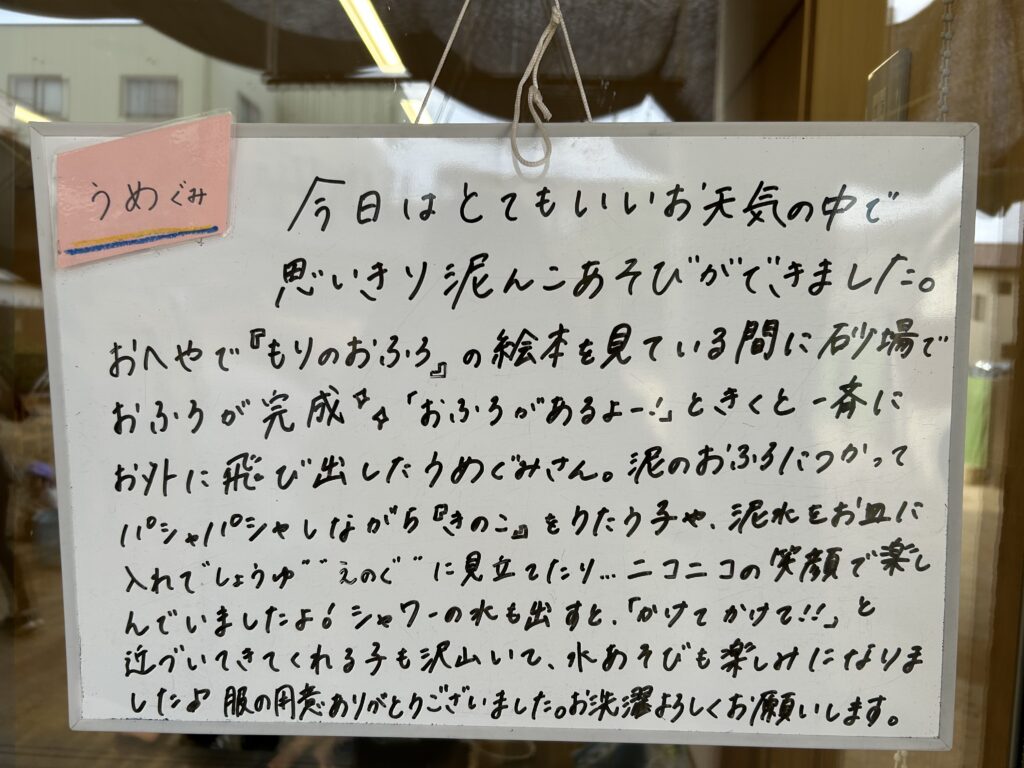 うめぐみ
今日はとてもいいお天気の中で
思いきり泥んこあそびができました。
おへやで『もりのおふろ』の絵本を見ている間に砂場で
おふろが完成✨「おふろがあるよー!」ときくと一斉に
お外に飛び出したうめぐみさん。泥のおふろにつかって
パシャパシャしながら『きのこ』をうたう子や、泥水をお皿に
入れて"しょうゆ""えのぐ"に見立てたり…ニコニコの笑顔で楽し
んでいましたよ! シャワーの水も出すと、「かけてかけて!!」と
近づいてきてくれる子も沢山いて、水あそびも楽しみになりま
したよ♪ 服の用意ありがとうございました。お洗濯よろしくお願いします。